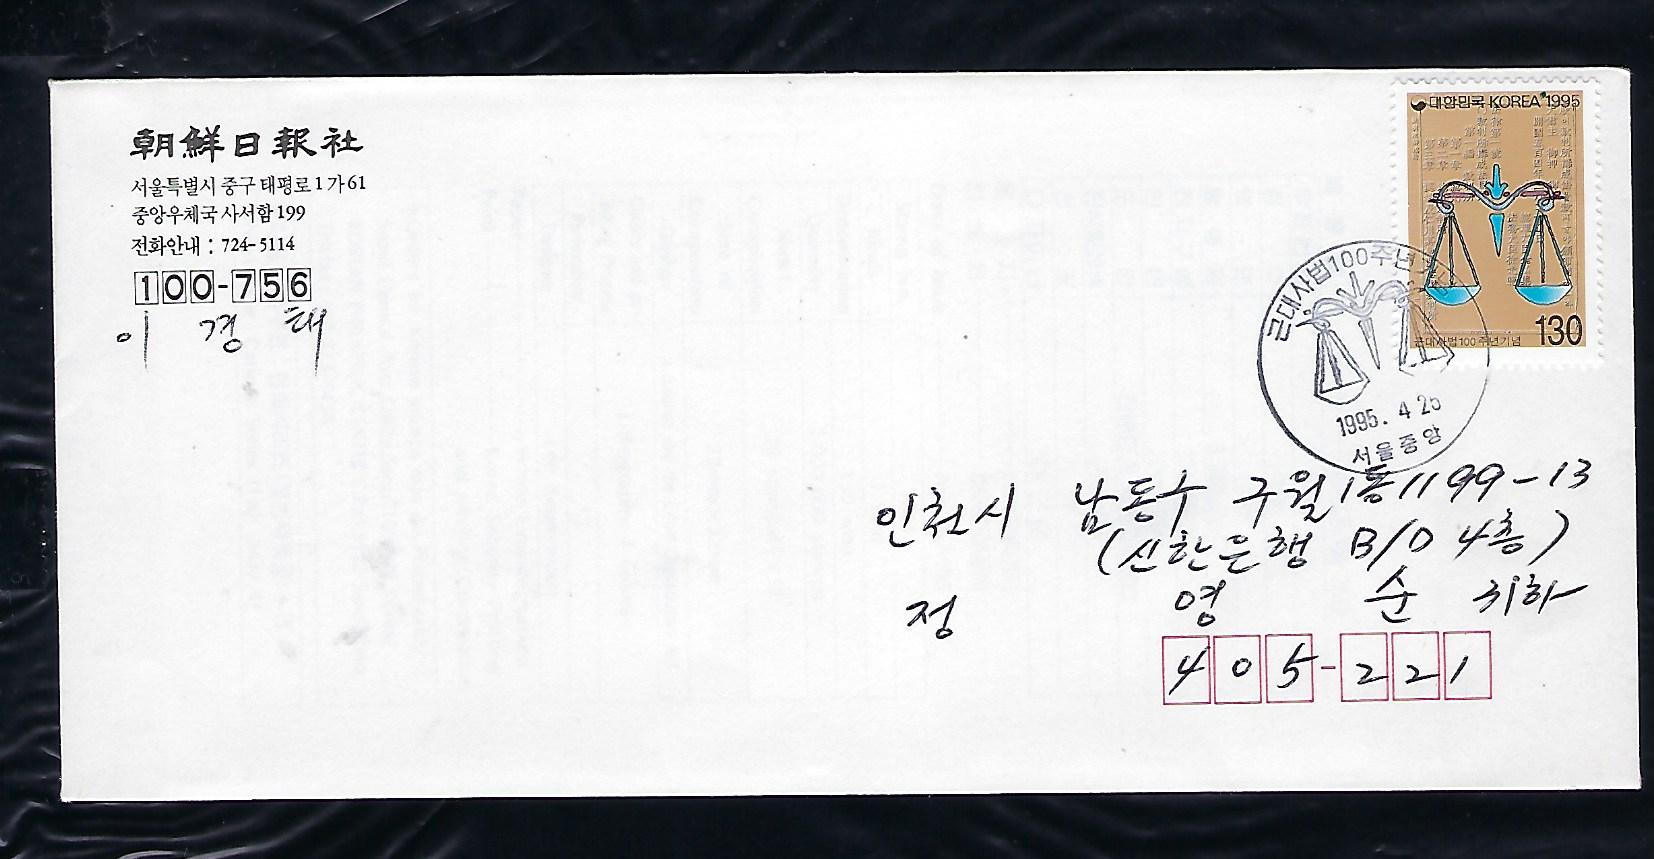 朝鮮日報社
서울특별시 중구 태평로 1가 61
중앙우체국 사서함 199
전화안내 : 724-5114
100-756
이 경 태
대한민국 KOREA 1995
130
근대사법100주년기념
근대사법100주년
1995. 4 25
서울중앙
인천시 남동구 구월1동 1199-13
(신한은행 B/D 4층)
정 영 순 귀하
405-221